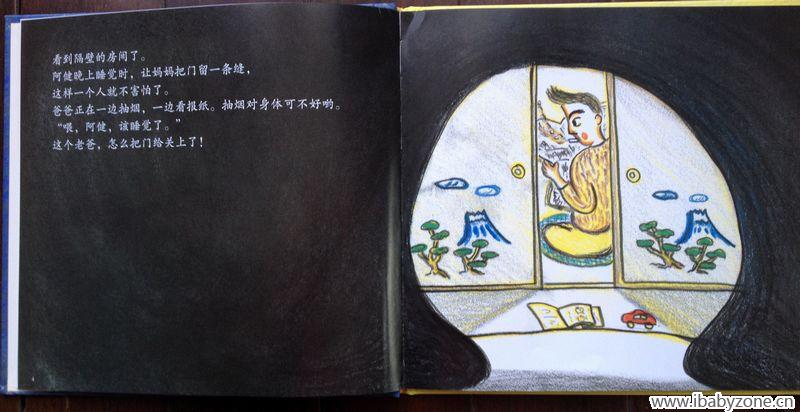 看到隔壁的房间了。
阿健晚上睡觉时，让妈妈把门留一条缝，
这样一个人就不害怕了。
爸爸正在一边抽烟，一边看报纸。抽烟对身体可不好哟。
“喂，阿健，该睡觉了。”
这个老爸，怎么把门给关上了！
www.ibabyzone.cn